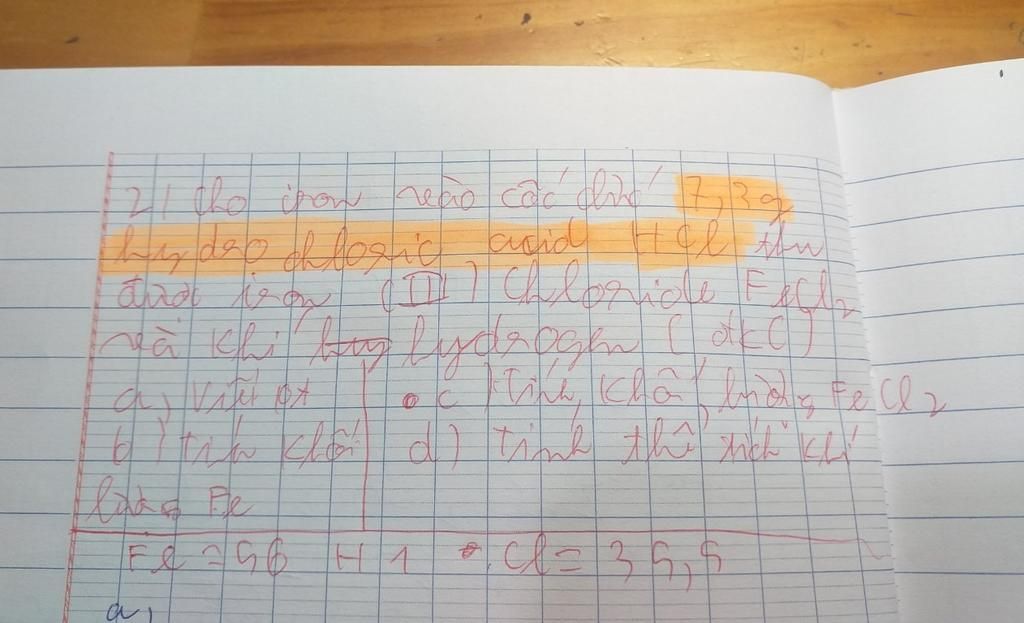 2/ Cho iron vào cốc chứa 7,3g
hydro chloric acid HCl thu
được iron (II) Chloride FeCl₂
và khí hydrogen (đkc)
a, Viết pt
c) Tính khối lượng FeCl₂
b) tính khối
d) tính thể tích khí
lượng Fe
Fe = 56 H 1 Cl = 35,5
a,